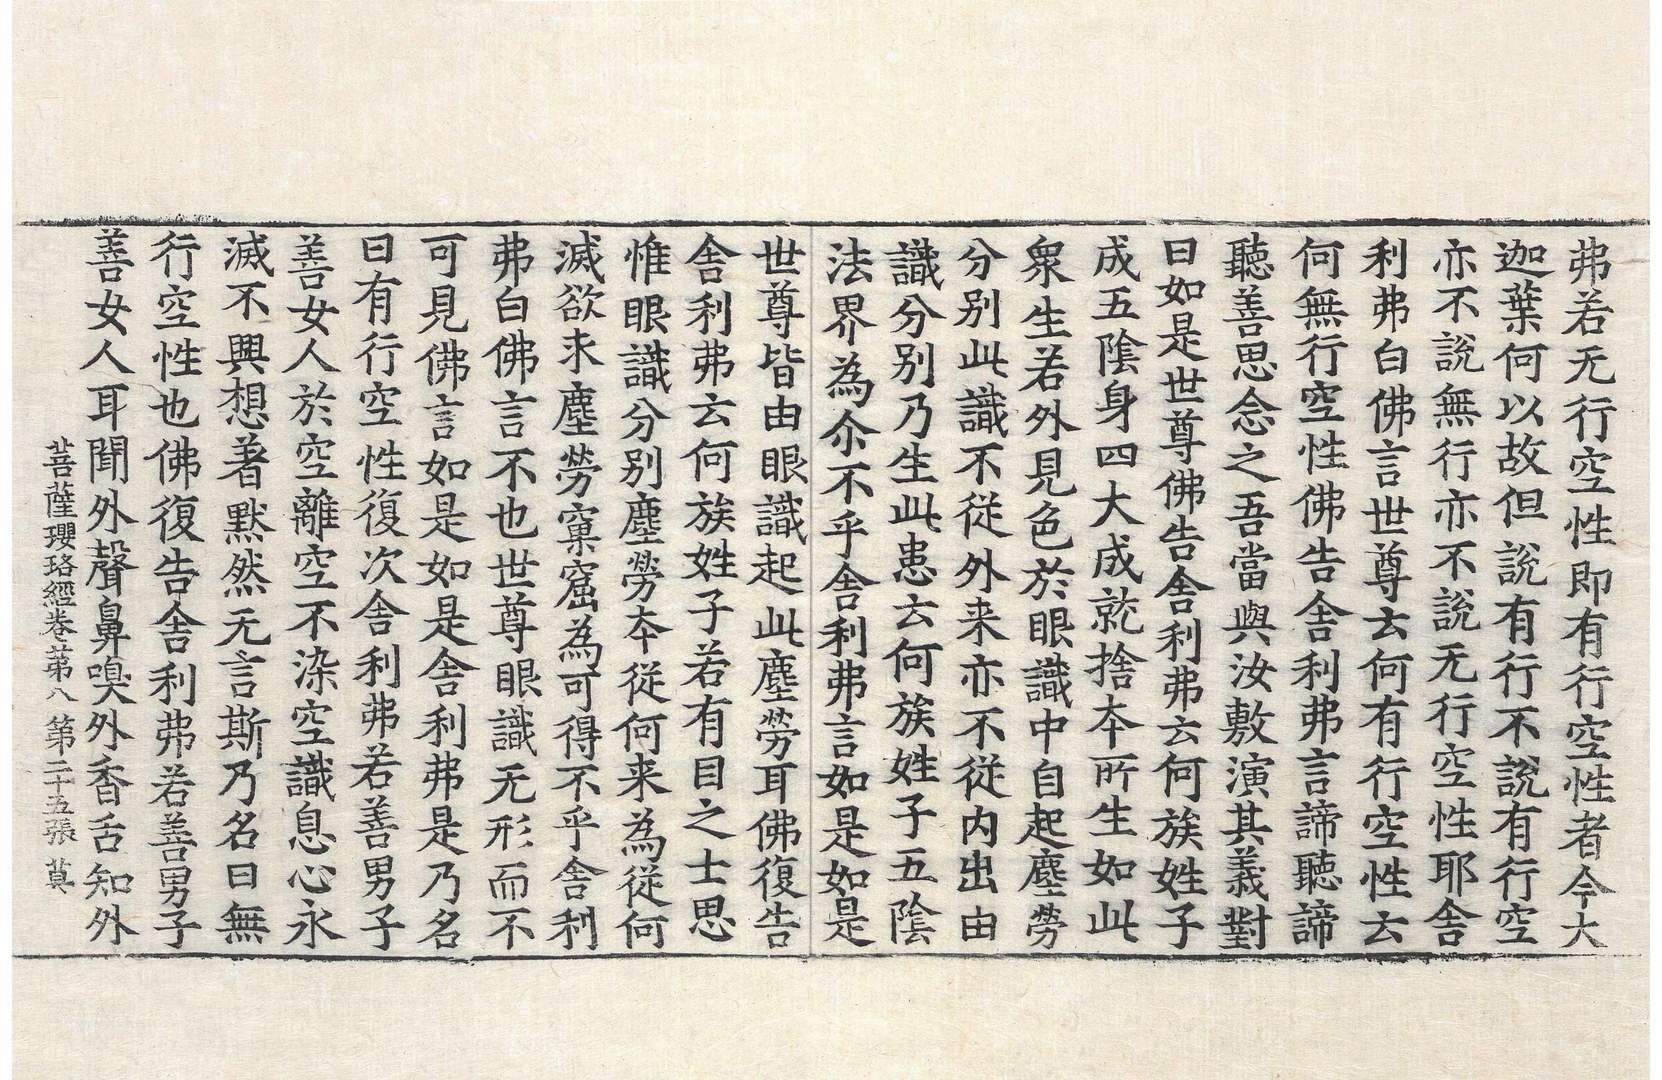 弗若无行空性即有行行空性者今大
迦葉何以故但說有行不說有行空
亦不說無行亦不說无行空性耶舎
利弗白佛言世尊云何有行空性云
何無行空性佛告舎利弗言諦聽諦
聽善思念之吾當與汝敷演其義對
曰如是世尊佛告舎利弗云何族姓子
成五隂身四大成就捨夲所生如此
衆生若外見色於眼識中自起塵勞
分别此識不從外来亦不從内出由
識分别乃生此患云何族姓子五隂
法界為尒不乎舎利弗言如是如是
世尊皆由眼識起此塵勞耳佛復告
舎利弗云何族姓子若有目之士思
惟眼識分别塵勞夲從何来為從何
滅欲求塵勞窠窟為可得不乎舎利
弗白佛言不也世尊眼識无形而不
可見佛言如是如是舎利弗是乃名
曰有行空性復次舎利弗若善男子
善女人於空離空不染空識息心永
滅不興想著默然无言斯乃名曰無
行空性也佛復告舎利弗若善男子
善女人耳聞外聲鼻嗅外香舌知外
菩薩瓔珞經卷第八　第二十五張　莫